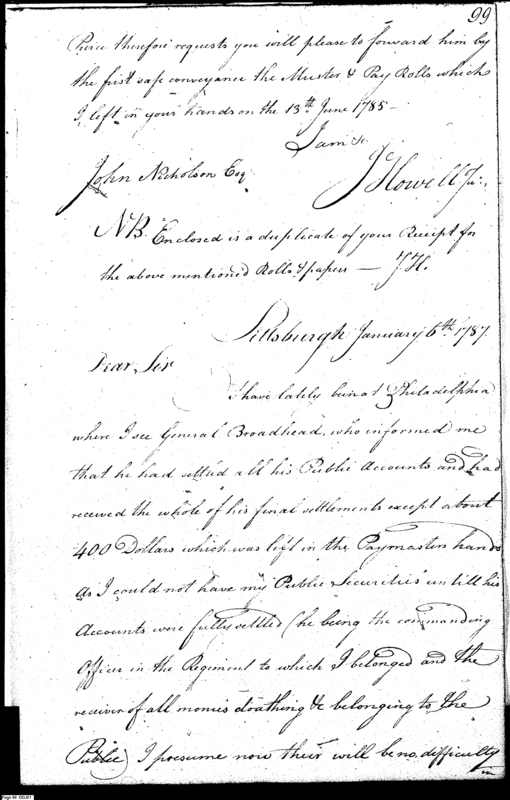 99
Pierce therefore requests you will please to forward him by
the first safe conveyance the Muster & Pay Rolls which
I left in your hands on the 13th June 1785 —
I am &c
John Nicholson Esq
J Howell Jr.
NB. Enclosed is a duplicate of your Receipt for
the above mentioned Rolls & papers — J.H.
Pittsburgh January 6th 1787.
Dear, Sir
I have lately been at Philadelphia
where I see General Broadhead, who informed me
that he had settled all his Public Accounts and had
received the whole of his final settlements except about
400 Dollars which was left in the Paymasters hands
as I could not have my Public Securities untill his
Accounts were fully settled (he being the commanding
Officer in the Regiment to which I belonged and the
reciver of all monies cloathing &c belonging to the
Public) I presume now their will be no difficulty
in
Page 99